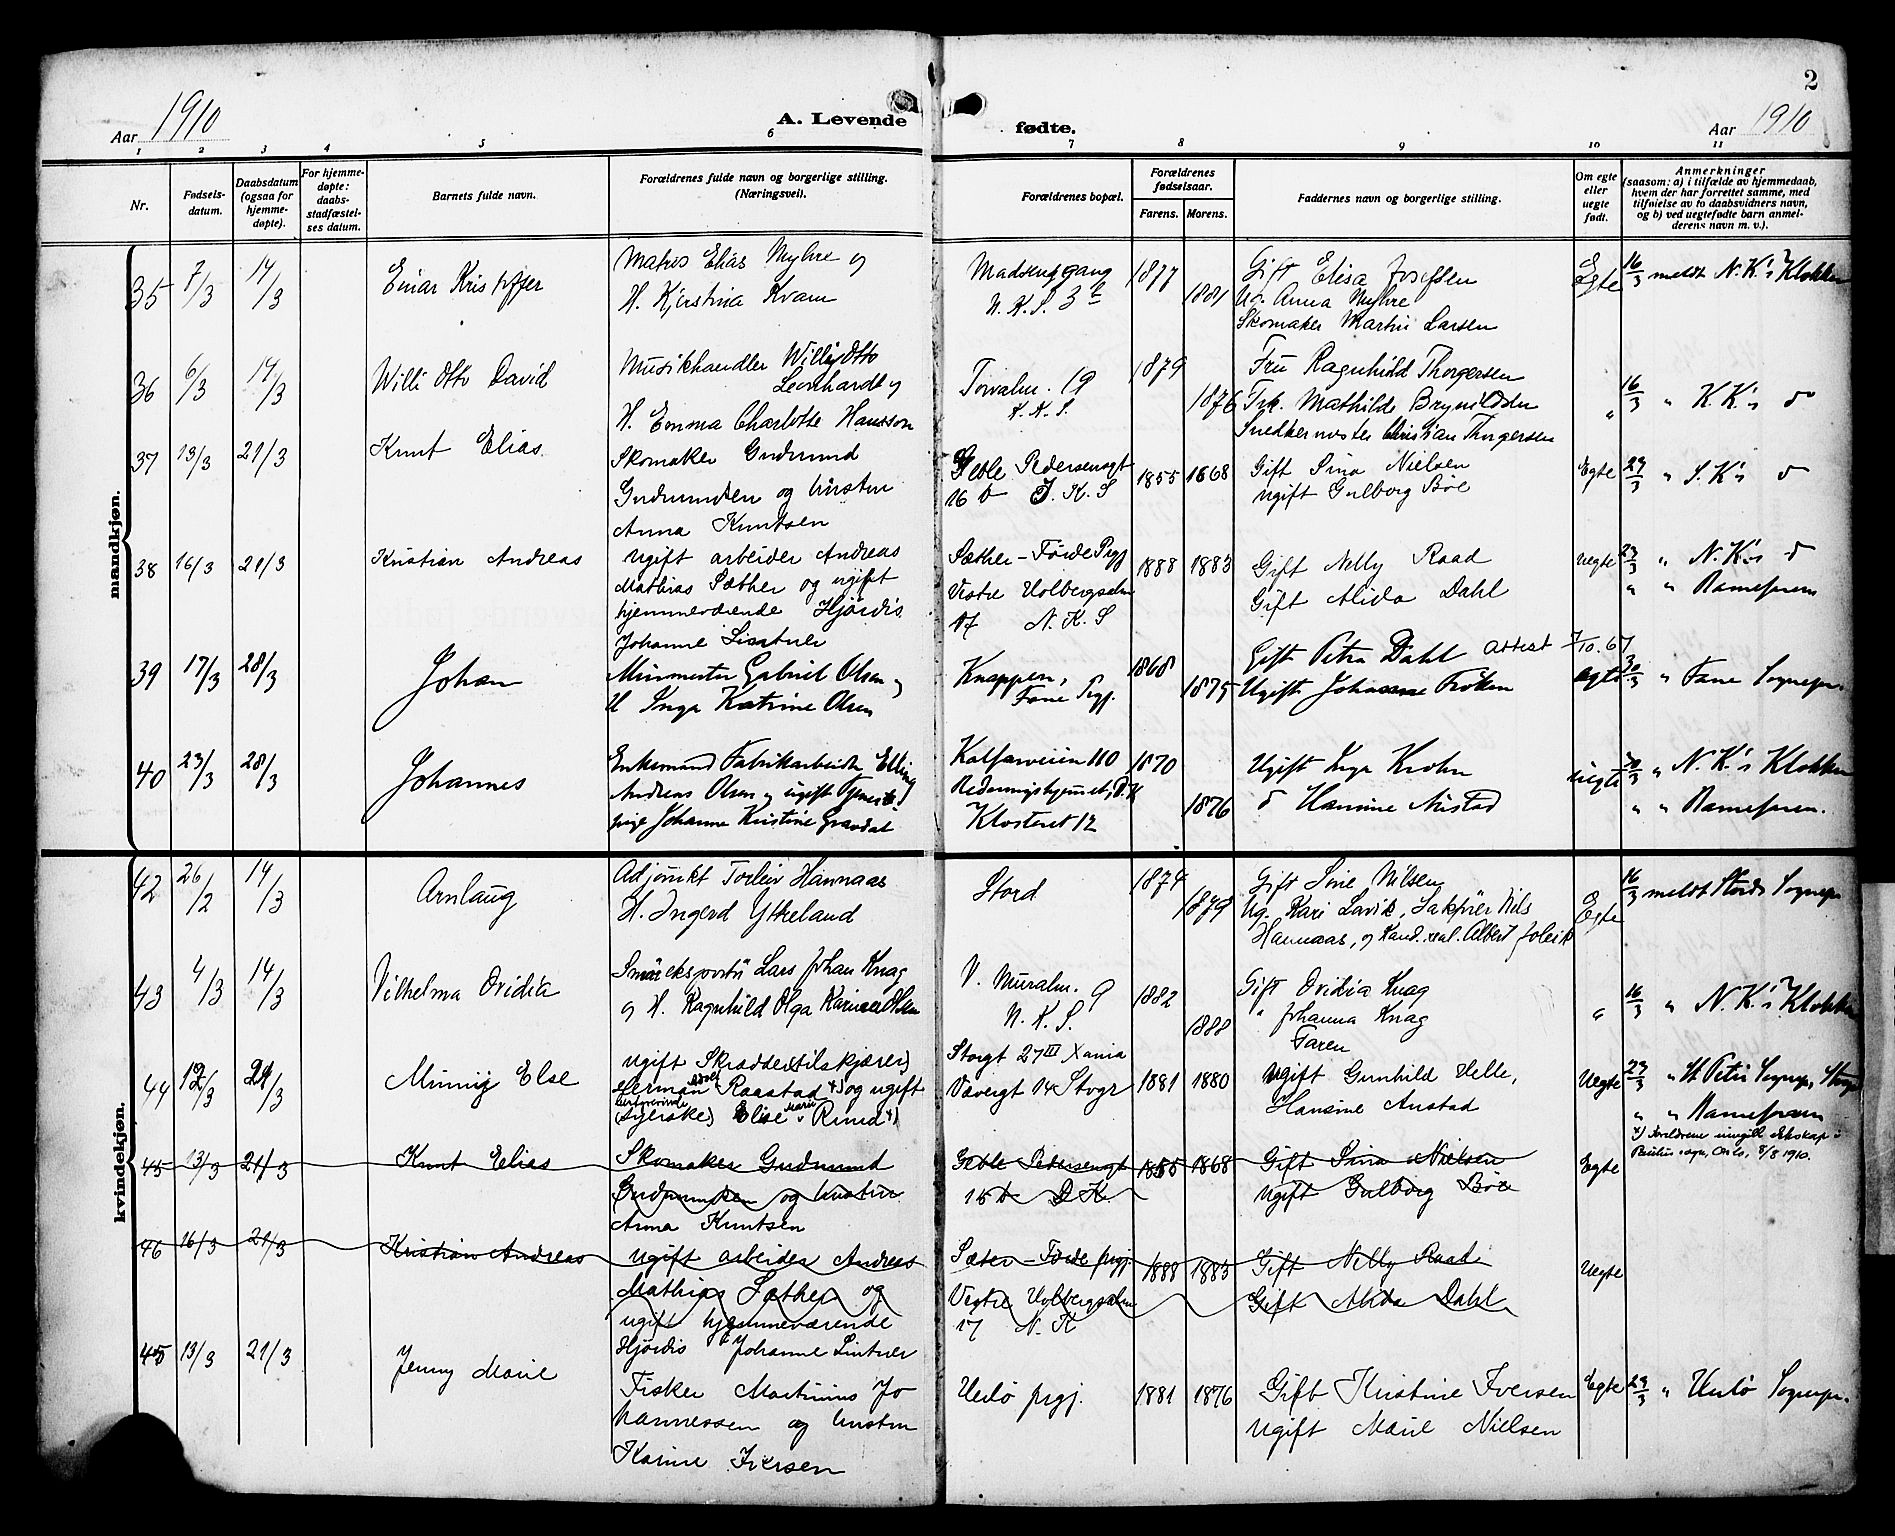 2
Aar 1910
A. Levende
fødte.
Aar 1910
1 2 3 4 5 6 7 8 9 10 11
Nr.
Fødsels-
datum.
Daabsdatum
(ogsaa for
hjemme-
døpte).
For hjemme-
døpte:
daabs-
stadfæstel-
ses datum.
Barnets fulde navn.
Forældrenes fulde navn og borgerlige stilling.
(Næringsvei).
Forældrenes bopæl.
Forældrenes
fødselsaar.
Farens. Morens.
Faddernes navn og borgerlige stilling.
Om egte
eller
uegte
født.
Anmerkninger
(saasom: a) i tilfælde av hjemmedaab,
hvem der har forrettet samme, med
tilføielse av to daabsvidners navn,
og b) ved uegtefødte barn anmel-
derens navn m. v.).
mandkjøn.
35 7/3 14/3 Einar Kristoffer
Elias Myhre og
H. Kjerstina Kvam
Madsens gang
N. K. S.
1877 1881
Gift Elisa Josefsen
Ug. Anna Myhre
Skomaker Martin Larsen
Egte 16/3 meldt N. K.'s Klokker
36 6/3 14/3 Willi Otto David
Musikhandler Willi Otto
Leonhardt og
H. Emma Charlotte Hansson
Torvalm. 19
K. K. S.
1879 1876
Fru Ragnhild Thorgersen
Frk. Mathilde Brynildsen
Snedkermester Christian Thorgersen
" 16/3 " K. K.'s do
37 13/3 21/3 Knut Elias
Skomaker Gudmund
Gudmundsen og hustru
Anna Knutsen
Geble Pedersensgt
16 b D. K. S
1855 1868
Gift Sina Nielsen
ugift Gulborg Böe
Egte 23/3 " D. K's do
38 16/3 21/3 Kristian Andreas
ugift arbeider Andreas
Mathias Sæther og ugift
hjemmeværende Hjördis
Johanne Lintner
Sæther - Förde Prgj
Vestre Holbergsalm
17 N. K. S
1888 1883
Gift Nelly Raad
Gift Alida Dahl
Uegte 23/3 " N. K's do
" " Barnefaren
attest 7/10.67
39 17/3 28/3 Johan
Murmester Gabriel Olsen og
H Inga Katrine Olsen
Knappen,
Fane Prgj.
1868 1875
Gift Petra Dahl
Ugift Johanne Fröken
Egte 30/3 " Fane Sognepr.
40 23/3 28/3 Johannes
Enkemand Fabrikarbeider Elling
Andreas Olsen og ugift Tjeneste
pige Johanne Kristine Gravdal
Kalfarveien 110
Redningshjemmet, D. K
Klosteret 12
1870 1876
Ugift Inga Krohn
do Hansine Austad
uegte 30/3 " N. K.'s Klokker
" " Barnefaren.
kvindekjøn.
42 26/2 14/3 Arnlaug
Adjunkt Torleiv Hannaas
H. Ingerd Ytreland
Stord
1874 1879
Gift Sine Nilsen
Ug. Kari Lavik, Sakfører Nils
Hannaas, og Kand. real. Albert Joleik
Egte 16/3 meldt Stords Sognepr
43 4/3 14/3 Vilhelma Ovidia
Smöreksportör Lars Johan Knag
og H. Ragnhild Olga Karina Olsen
V. Muralm. 9
N. K. S.
1882 1888
Gift Ovidia Knag
" Johanna Knag
Faren
" 16/3 " N. K.'s Klokker
44 12/3 21/3 Minnig Else
ugift Skrædder (tilskjærer)
Herman Adolf Raastad x) og ugift
(syerske) Elise Marie Rined x)
Storgt 27 III Xania
Vævergt 14 Stvgr
1881 1880
ugift Gunhild Helle,
Hansine Austad
Uegte 23/3 " St Petri Sognepr,
" " Barnefaren
x) Foreldrene inngitt ekteskap i
sogn, Oslo, 7/8 1910.
45 13/3 21/3 Knut Elias
Skomaker Gudmund
Gudmundsen og hustru
Anna Knutsen
Geble Pedersensgt
16 b D K
1855 1868
Gift Sina Nielsen
ugift Gulborg Böe
Egte
46 16/3 21/3 Kristian Andreas
ugift arbeider Andreas
Mathias Sæther og
ugift hjemmeværende
Hjördis Johanne Lintner
Sæter - Förde prgj.
Vestre Holbergsalm
17 N. K
1888 1883
Gift Nelly Raad
Gift Alida Dahl
Uegte
45 13/3 21/3 Jenny Marie
Fisker Martinius Jo
hannessen og hustru
Karine Iversen
Herlö prgj.
1881 1876
Gift Kristine Iversen
ugift Marie Nielsen
Egte 23/3 " Herlö Sognepr.